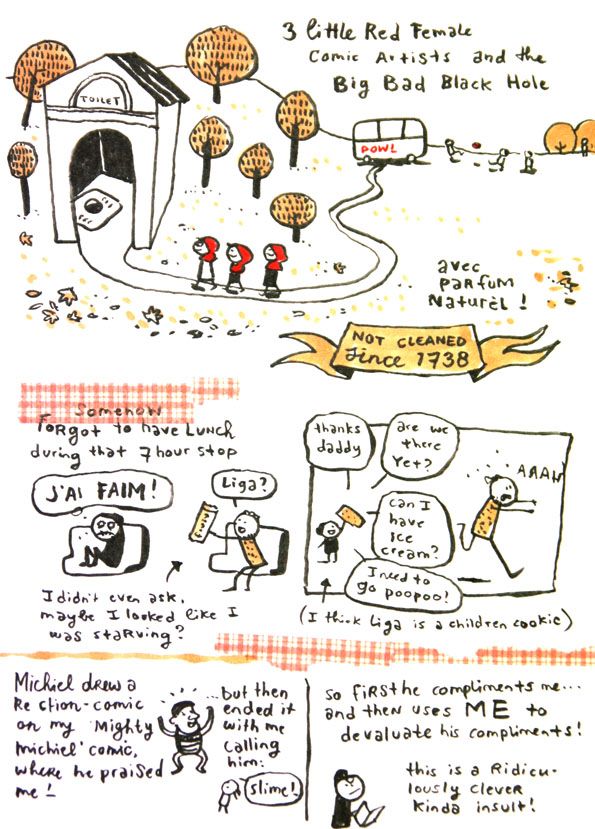 3 little Red Female
Comic Artists and the
Big Bad Black Hole
TOILET
POWL
avec
parfum
naturel!
NOT CLEANED
Since 1738
Somehow
Forgot to have lunch
during that 7 hour stop
J'AI FAIM!
Liga?
I didn't even ask,
maybe I looked like I
was starving?
thanks
daddy
are we
there
yet?
AAAH
can I
have
ice
cream?
I need to
go poopoo!
(I think Liga is a children cookie)
Michiel drew a
Re ction-comic
on my 'Mighty
Michiel' comic,
where he praised
me!
...but then
ended it
with me
calling
him:
slime!
so first he compliments me...
and then uses ME to
devaluate his compliments!
this is a Ridicu-
lously clever
kinda insult!